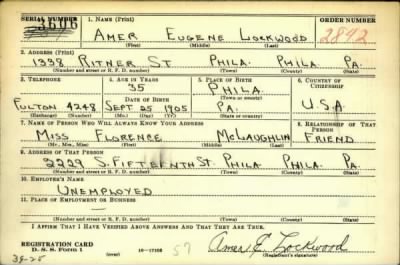 SERIAL NUMBER 1. NAME (Print) ORDER NUMBER
3606 AMER EUGENE LOCKWOOD 2892
(First) (Middle) (Last)
2. ADDRESS (Print)
1338 RITNER ST PHILA. PHILA. PA.
(Number and street or R. F. D. number) (Town) (County) (State)
3. TELEPHONE 4. AGE IN YEARS 5. PLACE OF BIRTH 6. COUNTRY OF CITIZENSHIP
35 PHILA.
DATE OF BIRTH (Town or county)
FULTON 4248 SEPT 25 1905 PA. U.S.A.
(Exchange) (Number) (Mo.) (Day) (Yr.) (State or country)
7. NAME OF PERSON WHO WILL ALWAYS KNOW YOUR ADDRESS 8. RELATIONSHIP OF THAT PERSON
MISS FLORENCE McLAUGHLIN FRIEND
(Mr., Mrs., Miss) (First) (Middle) (Last)
9. ADDRESS OF THAT PERSON
2229 S. FIFTEENTH ST. PHILA. PHILA. PA.
(Number and street or R. F. D. number) (Town) (County) (State)
10. EMPLOYER'S NAME
UNEMPLOYED
11. PLACE OF EMPLOYMENT OR BUSINESS
—
(Number and street or R. F. D. number) (Town) (County) (State)
I AFFIRM THAT I HAVE VERIFIED ABOVE ANSWERS AND THAT THEY ARE TRUE.
REGISTRATION CARD
D. S. S. Form 1 (over) 16—17105 57 Amer E. Lockwood
38-25 (Registrant's signature)